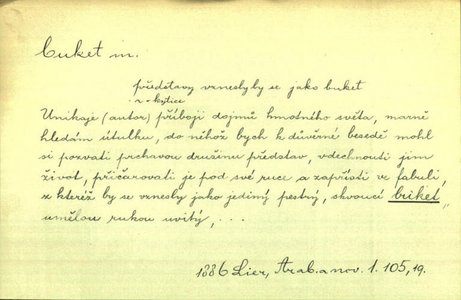 buket m.
představy vznesly by se jako buket
- v - kytice
Unikaje (autor) příboji dojmů hmotného světa, marně
hledám útulku, do něhož bych k důvěrné besedě mohl
si pozvati prchavou družinu představ, vdechnouti jim
život, přičarovati je pod své ruce a zapřísti ve fabuli,
z kteréž by se vznesly jako jediný pestrý, skvoucí briket,
umělou rukou uvitý, ...
1886 Lier, Arab. a nov. 1. 105, 19.